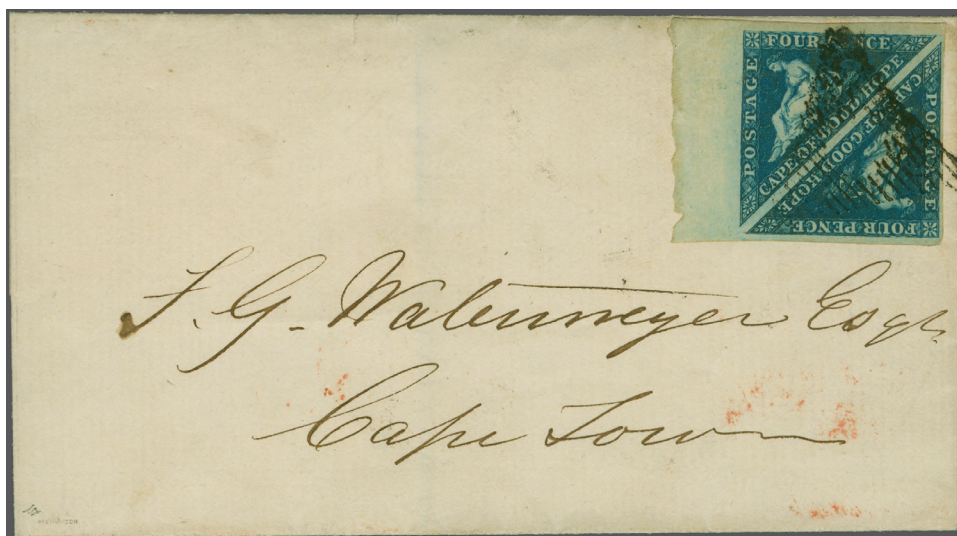 FOUR PENCE
POSTAGE
CAPE OF GOOD HOPE
CAPE OF GOOD HOPE
POSTAGE
FOUR PENCE
F. G. Watermeyer Esqre
Cape Town